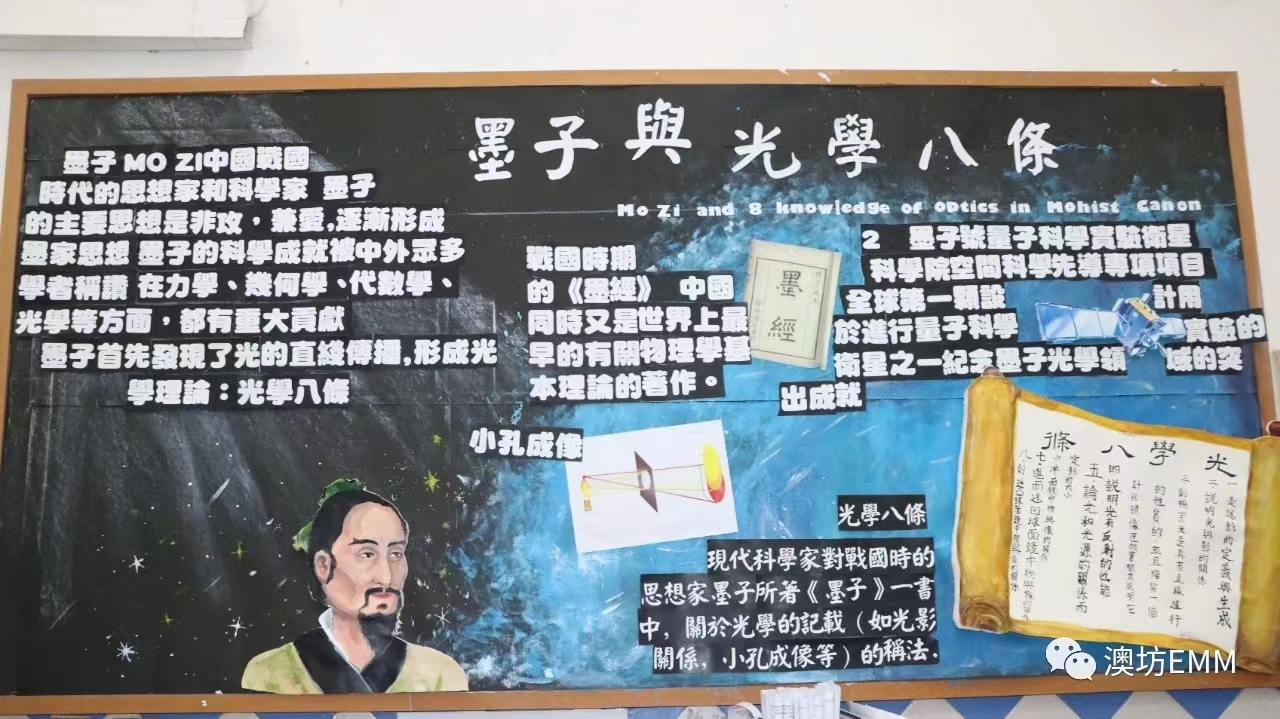 墨子與光學八條
Mo Zi and 8 knowledge of optics in Mohist Canon
墨子 MO ZI中國戰國
時代的思想家和科學家 墨子
的主要思想是非攻，兼愛,逐漸形成
墨家思想 墨子的科學成就被中外眾多
學者稱讚 在力學、幾何學、代數學、
光學等方面，都有重大貢獻
墨子首先發現了光的直綫傳播,形成光
學理論：光學八條
戰國時期
的《墨經》 中國
同時又是世界上最
早的有關物理學基
本理論的著作。
墨經
2 墨子號量子科學實驗衛星
科學院空間科學先導專項項目
全球第一顆設 計用
於進行量子科學 實驗的
衛星之一紀念墨子光學領 域的突
出成就
小孔成像
光學八條
現代科學家對戰國時的
思想家墨子所著《墨子》一書
中，關於光學的記載（如光影
關係，小孔成像等）的稱法.
光學八條
一是述影的定義與生成
二說明光與影的關係
的性質的 並且描寫一個
四說明光有反射的性能
五論光和光源的關係而
定影的大小
七.進而述凹球面鏡中物與像的
澳坊EMM